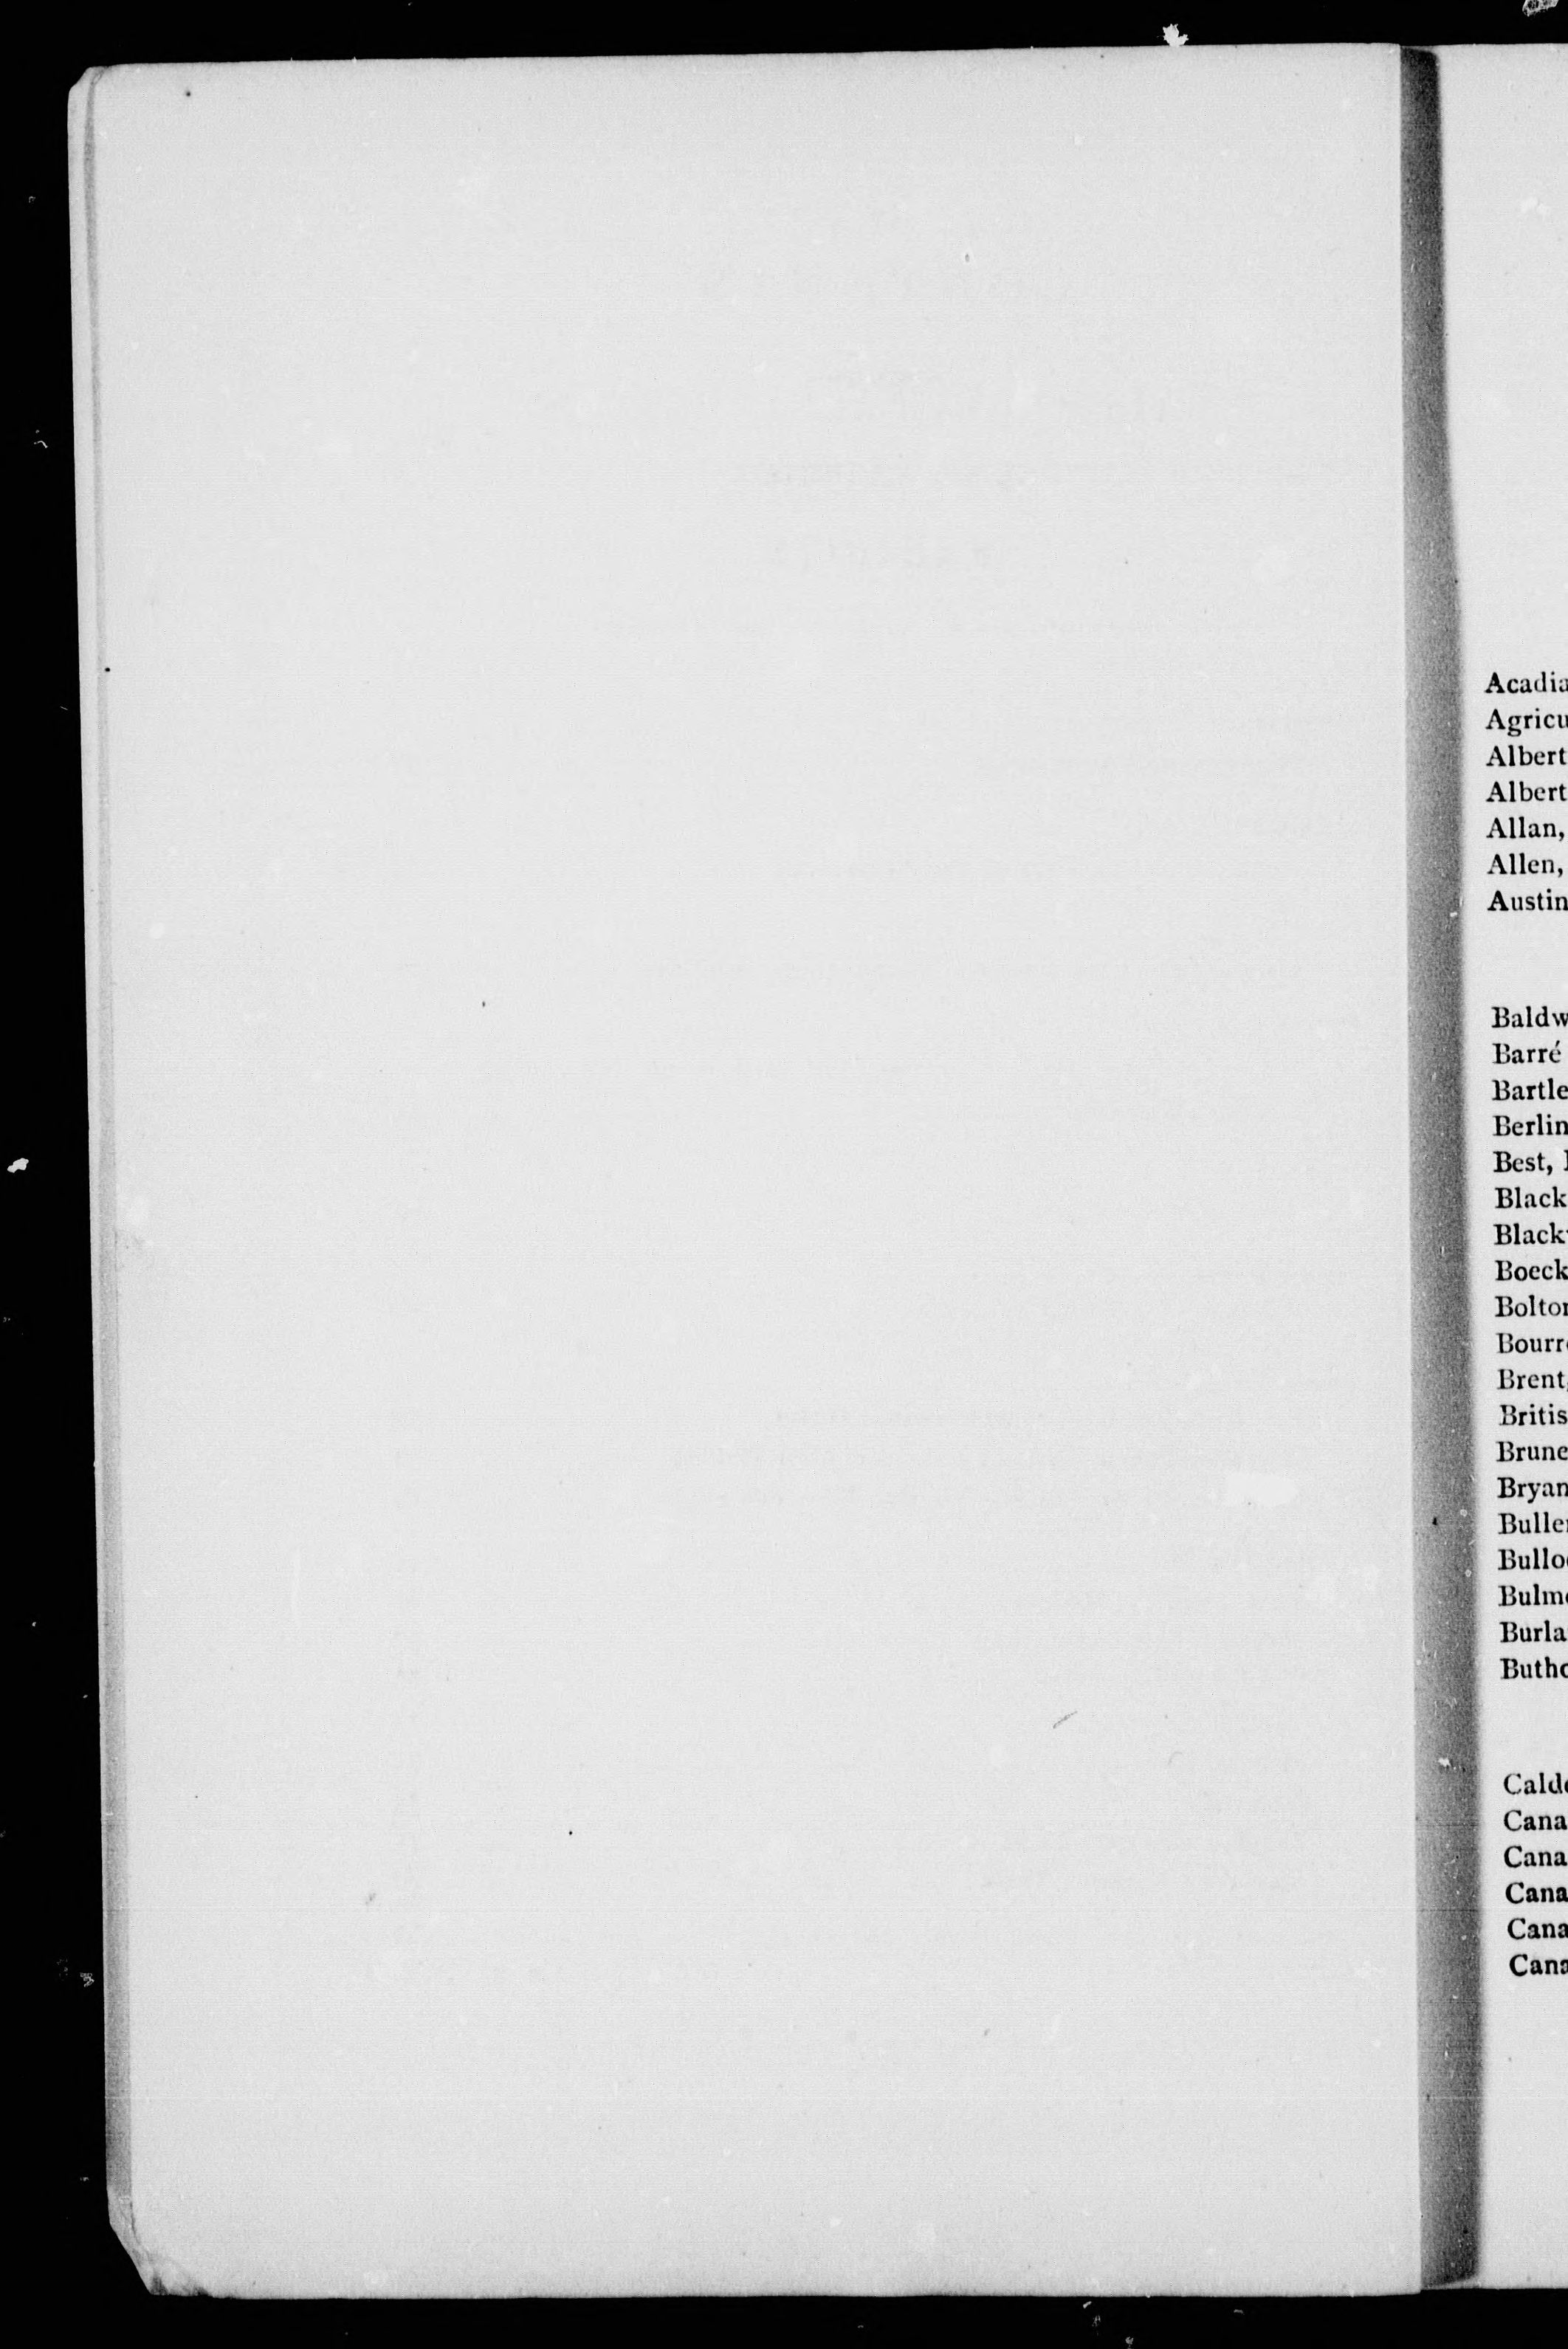 Acadia
Agricu
Albert
Albert
Allan,
Allen,
Austin
Baldw
Barré
Bartle
Berlin
Best,
Black
Black
Boeck
Bolto
Bourr
Brent
Britis
Brune
Bryan
Bulle
Bullo
Bulm
Burla
Butho
Cald
Cana
Cana
Cana
Cana
Cana